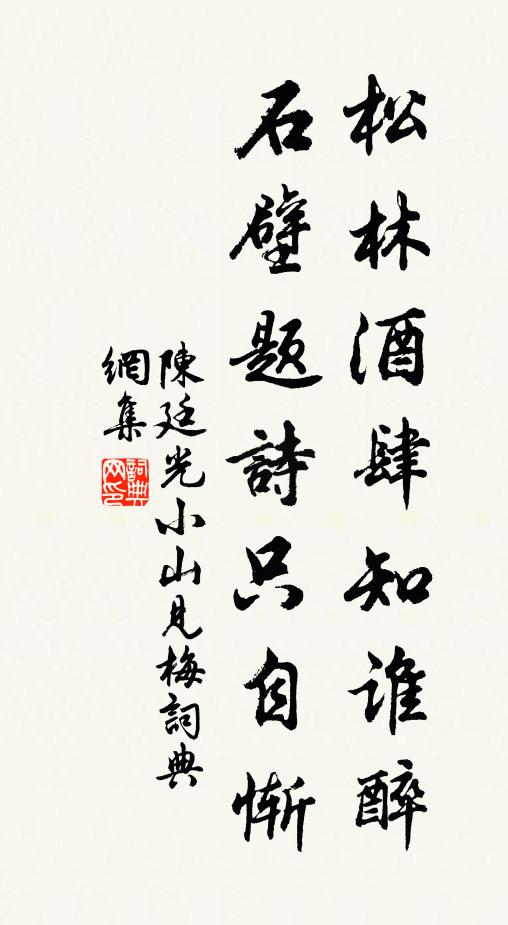 松林酒肆知谁醉
石壁题詩只自惭
陳廷光小山見梅詞典
網集
詞典
网印